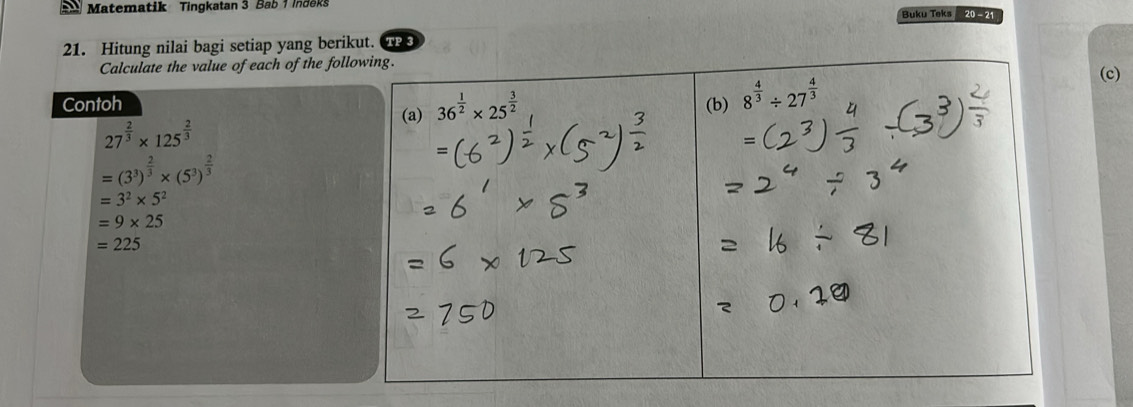 Matematik Tingkatan 3 Bab 1 Indeks
Buku Teks 20 – 21
21. Hitung nilai bagi setiap yang berikut. TP 3
Calculate the value of each of the following.
Contoh
27^(2/3) × 125^(2/3)
= (3³)^(2/3) × (5³)^(2/3)
= 3² × 5²
= 9 × 25
= 225
(a) 36^(1/2) × 25^(3/2)
= (6²)^(1/2) × (5²)^(3/2)
= 6¹ × 5³
= 6 × 125
= 750
(b) 8^(4/3) ÷ 27^(4/3)
= (2³)^(4/3) ÷ (3³)
= 2⁴ ÷ 3⁴
= 16 ÷ 81
(c)